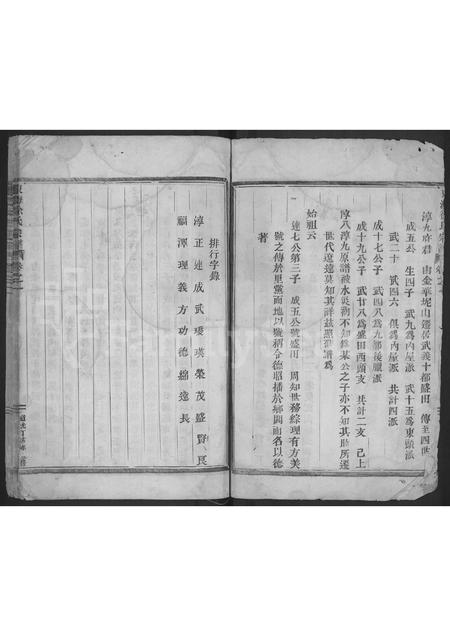 淳九府君 由金華坭山遷居武義十都盛田 傳至四世
成五公 生四子 武九爲內屋派 武十五爲東頭派
武二十 貳四六 俱爲內屋派 共計四派
成十七公子 武四八爲九都後 派
成十九公子 武廿八爲盛田西頭支 共計二支 已上
淳八淳九原譜被水災勦不知 某公之子亦不知其 所遷
世代遼遠莫知其詳茲照 譜爲
始祖云
達七公第三子 成五公號盛田 周知世務綜理有方美
號之傳於里黨而地以號稱令德昭播於鄉閭而名以德
著
排行字錄
淳正達成武 瑛榮茂盛賢良
福澤理義方功德綿遠長